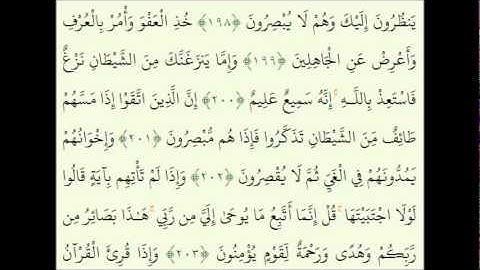 يَنظُرُونَ إِلَيْكَ وَهُمْ لَا يُبْصِرُونَ ﴿١٩٨﴾ خُذِ الْعَفْوَ وَأْمُرْ بِالْعُرْفِ
وَأَعْرِضْ عَنِ الْجَاهِلِينَ ﴿١٩٩﴾ وَإِمَّا يَنزَغَنَّكَ مِنَ الشَّيْطَانِ نَزْغٌ
فَاسْتَعِذْ بِاللَّـهِ ۚ إِنَّهُ سَمِيعٌ عَلِيمٌ ﴿٢٠٠﴾ إِنَّ الَّذِينَ اتَّقَوْا إِذَا مَسَّهُمْ
طَائِفٌ مِّنَ الشَّيْطَانِ تَذَكَّرُوا فَإِذَا هُم مُّبْصِرُونَ ﴿٢٠١﴾ وَإِخْوَانُهُمْ
يَمُدُّونَهُمْ فِي الْغَيِّ ثُمَّ لَا يُقْصِرُونَ ﴿٢٠٢﴾ وَإِذَا لَمْ تَأْتِهِم بِآيَةٍ قَالُوا
لَوْلَا اجْتَبَيْتَهَا ۚ قُلْ إِنَّمَا أَتَّبِعُ مَا يُوحَىٰ إِلَيَّ مِن رَّبِّي ۚ هَـٰذَا بَصَائِرُ مِن
رَّبِّكُمْ وَهُدًى وَرَحْمَةٌ لِّقَوْمٍ يُؤْمِنُونَ ﴿٢٠٣﴾ وَإِذَا قُرِئَ الْقُرْآنُ